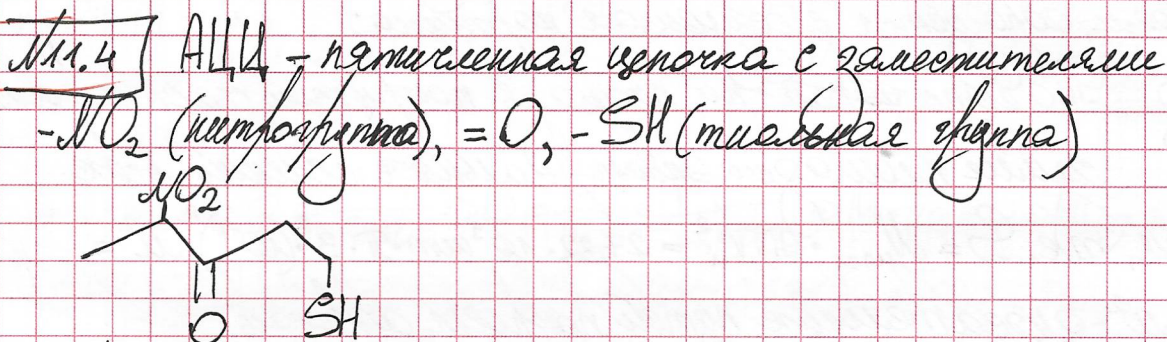 №11.4 АЦЦ - пятичленная цепочка с заместителями
-NO₂ (нитрогруппа), =O, -SH (тиольная группа)
NO₂
O
SH